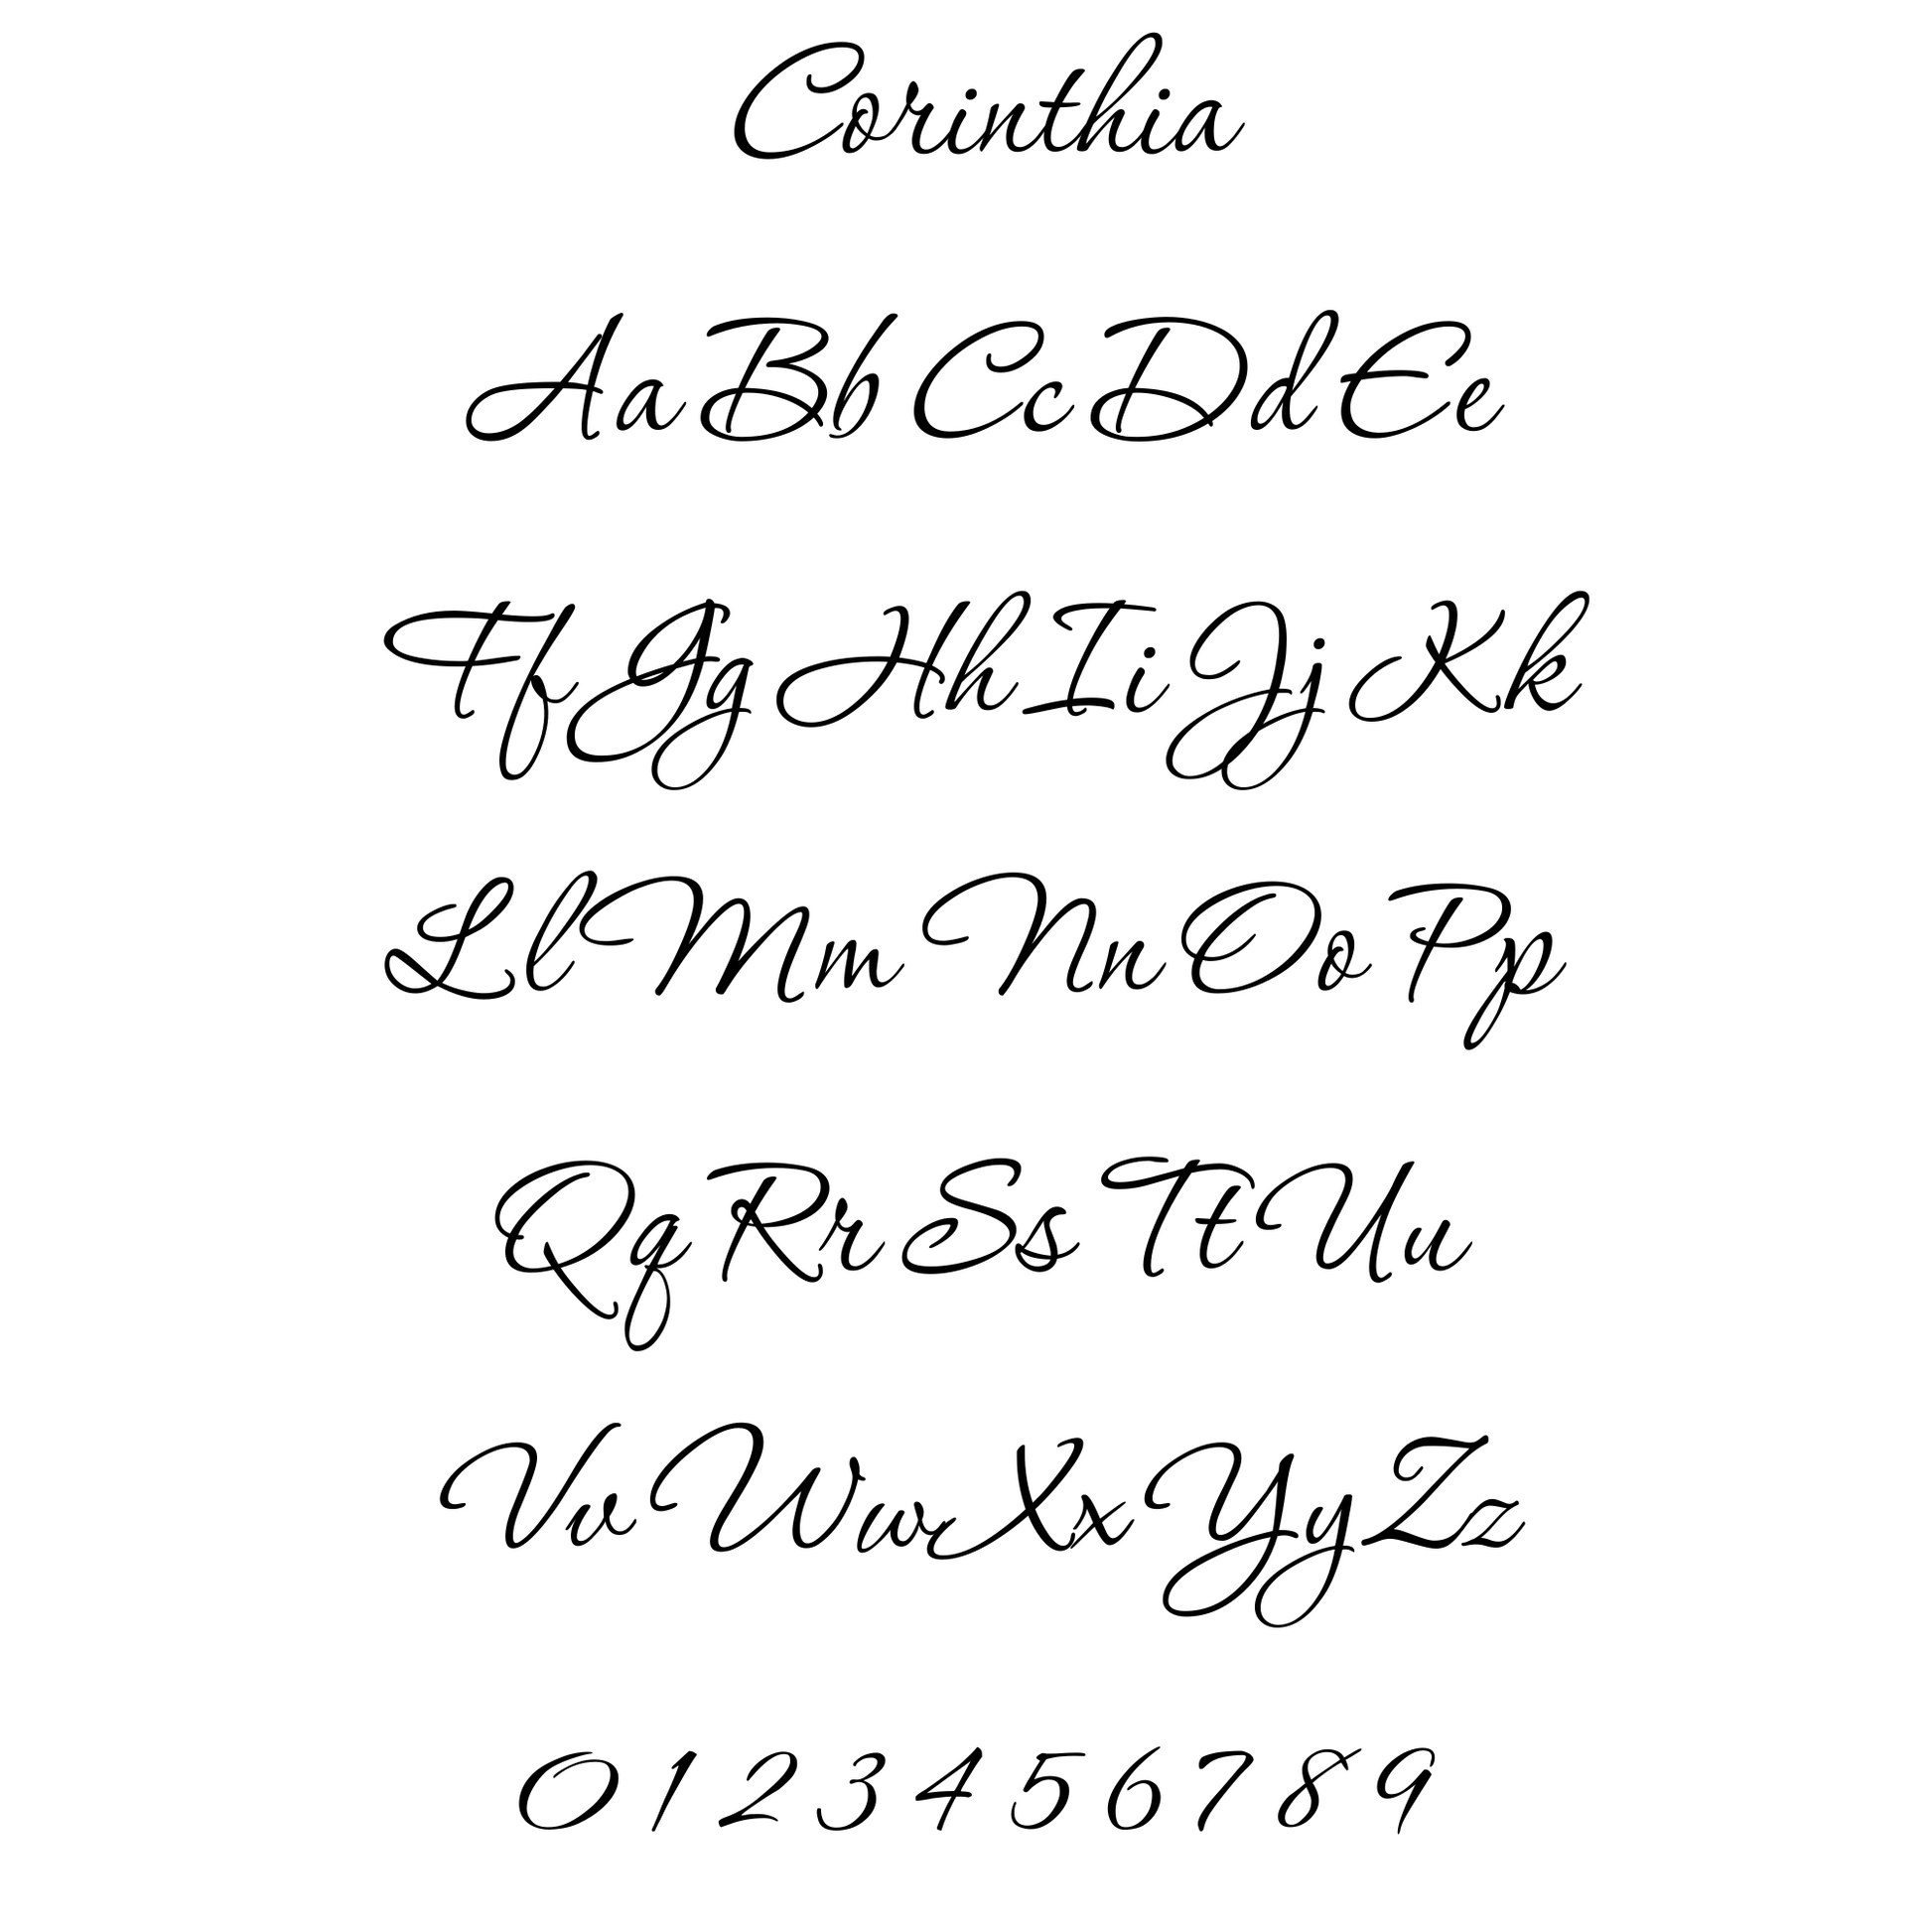 Corinthia
Aa Bb Cc Dd Ee
Ff Gg Hh Ii Jj Kk
Ll Mm Nn Oo Pp
Qq Rr Ss Tt Uu
Vv Ww Xx Yy Zz
0 1 2 3 4 5 6 7 8 9